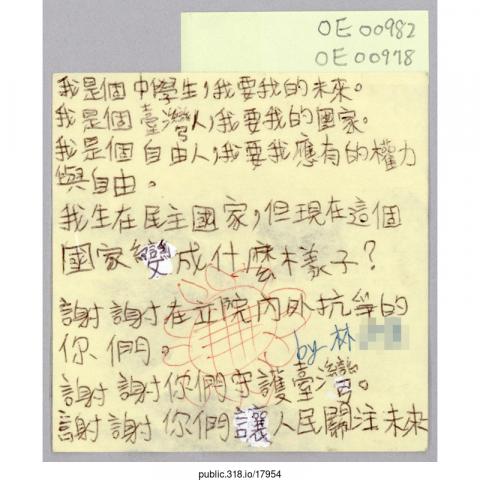 OE 00982
OE 00978
我是個中學生，我要我的未來。
我是個臺灣人，我要我的國家。
我是個自由人，我要我應有的權力
與自由。
我生在民主國家，但現在這個
國家變成什麼樣子？
謝謝在立院內外抗爭的
你們。
by 林
謝謝你們守護臺灣。
謝謝你們讓人民關注未來
public.318.io/17954